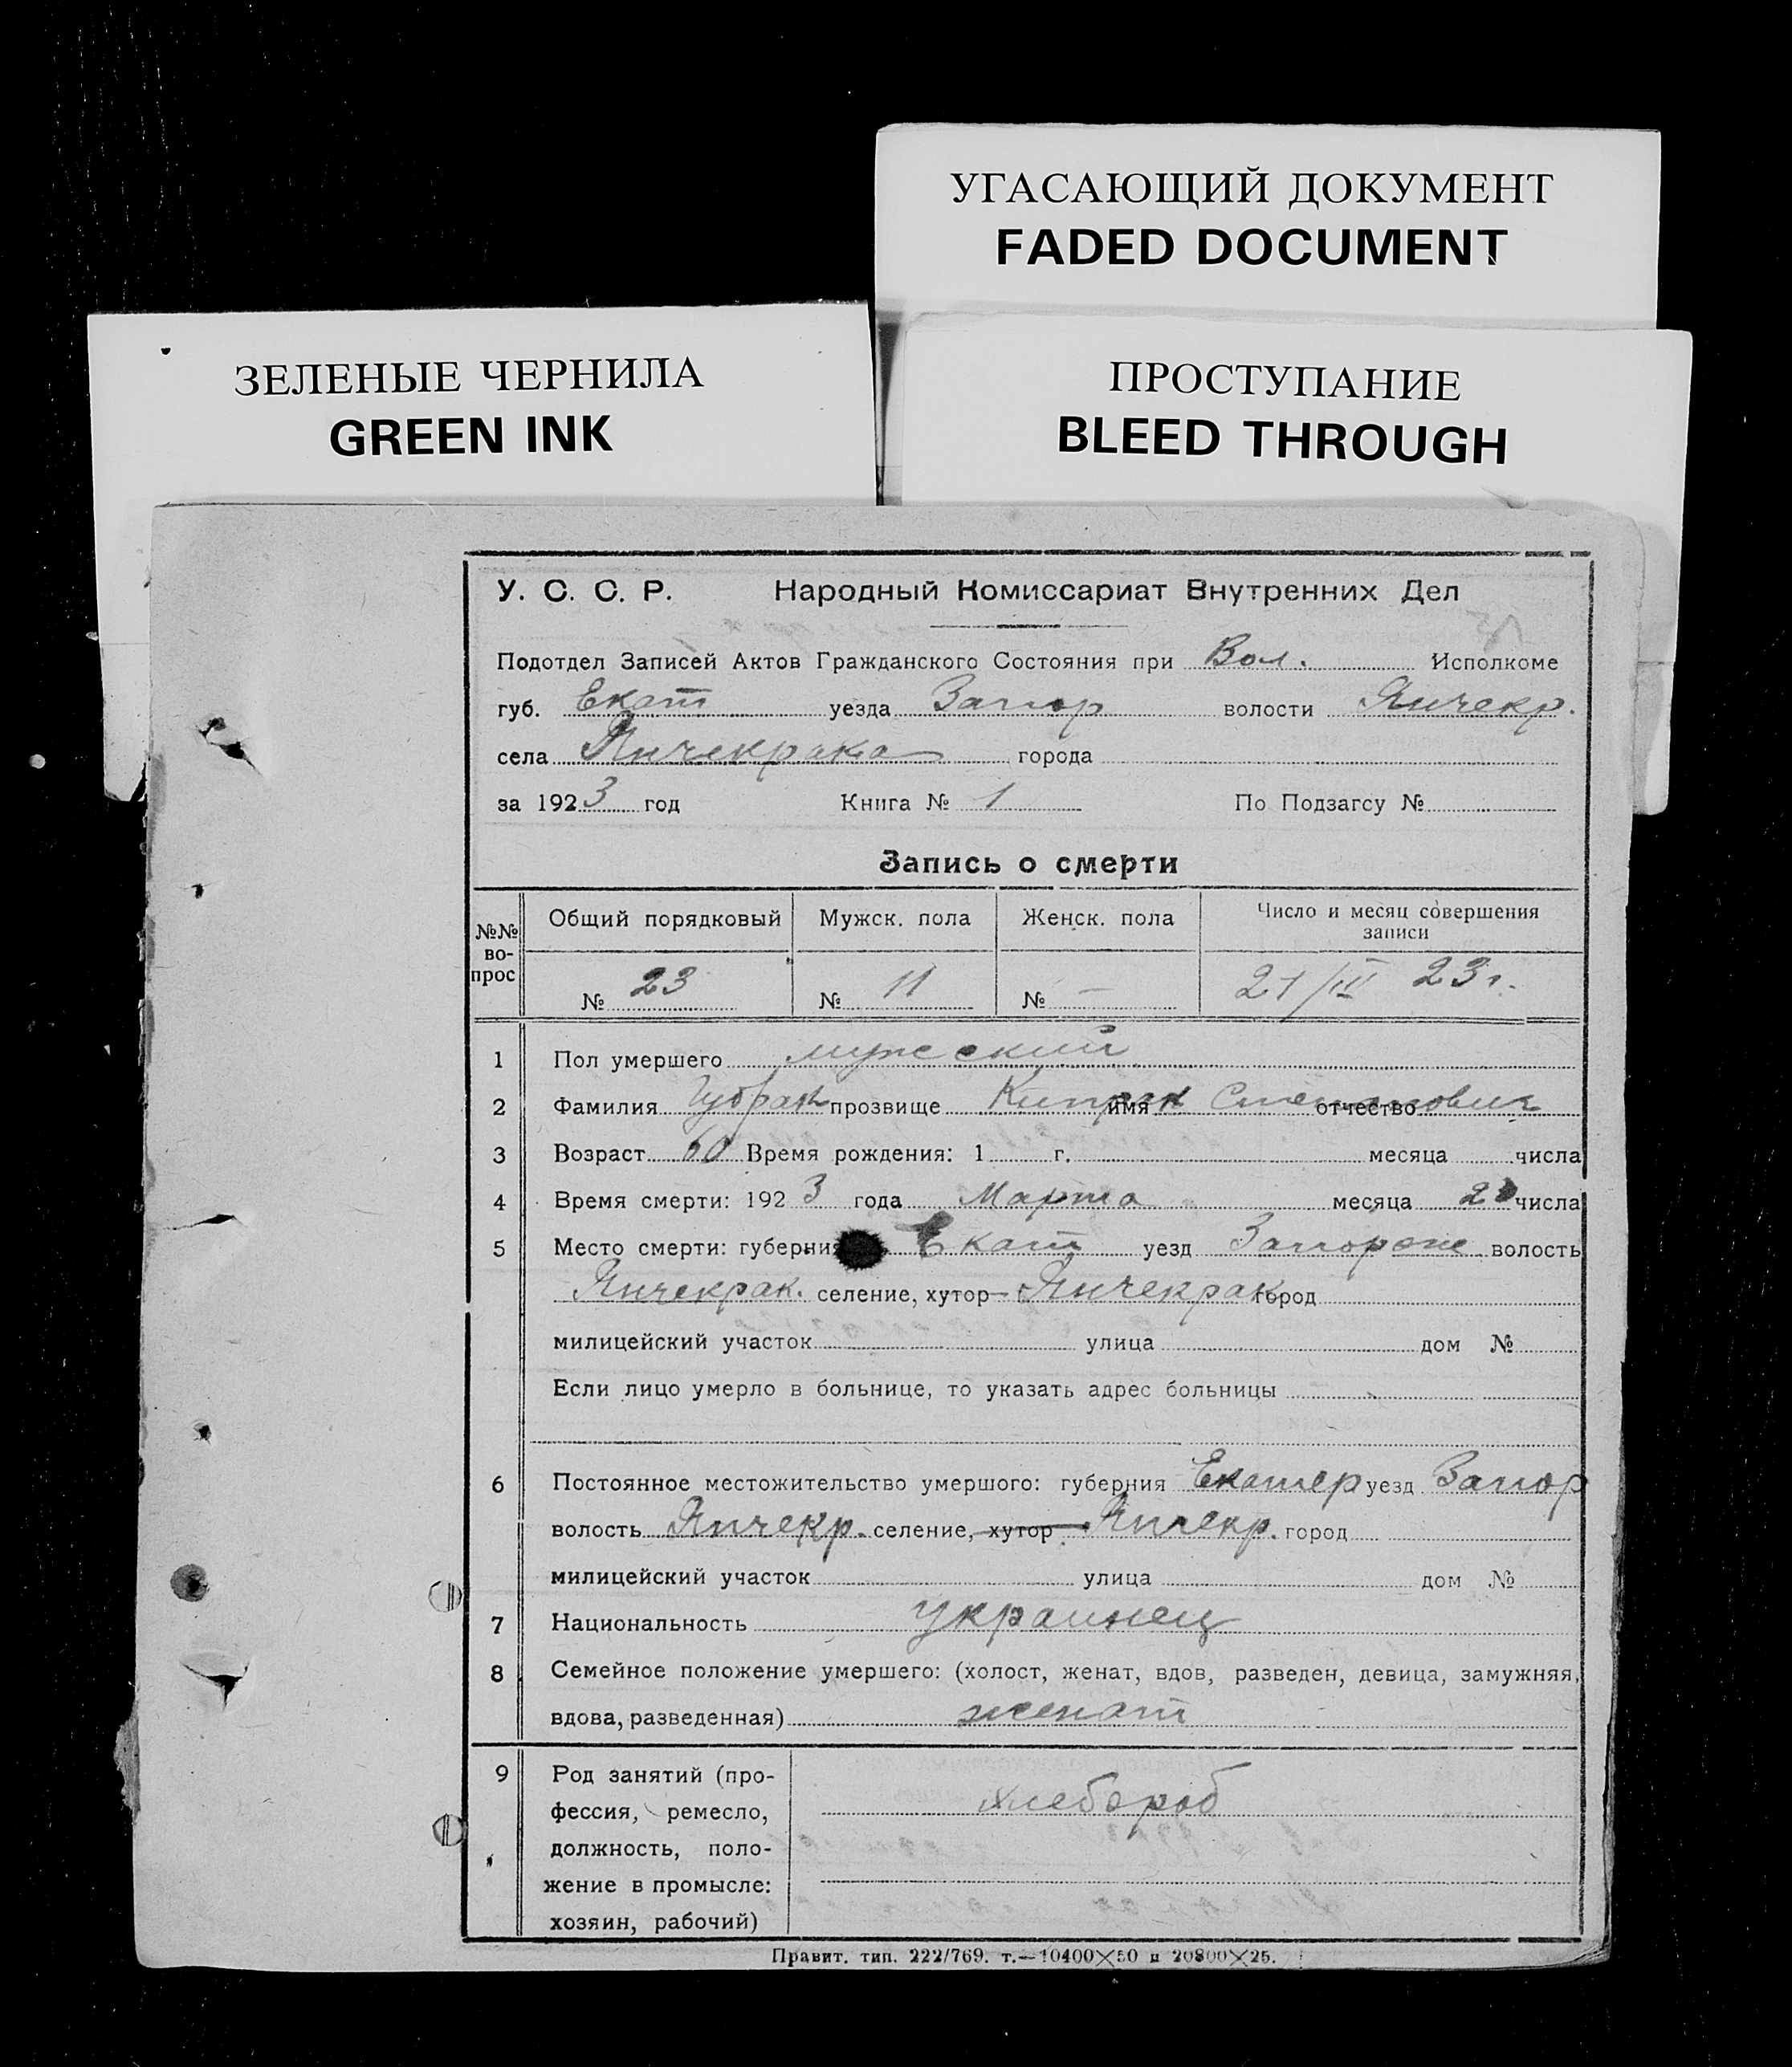 УГАСАЮЩИЙ ДОКУМЕНТ
FADED DOCUMENT
ЗЕЛЕНЫЕ ЧЕРНИЛА
GREEN INK
ПРОСТУПАНИЕ
BLEED THROUGH
У. С. С. Р. Народный Комиссариат Внутренних Дел
Подотдел Записей Актов Гражданского Состояния при Вол. Исполкоме
губ. Екат уезда Запор волости Янчекр.
села Янчекрака города
за 1923 год Книга № 1 По Подзагсу №
Запись о смерти
№№ вопрос Общий порядковый Мужск. пола Женск. пола Число и месяц совершения записи
№ 23 № 11 № — 21/III 23 г.
1 Пол умершего мужеский
2 Фамилия прозвище Киприян имя Степанович отчество
3 Возраст 60 Время рождения: 1 г. месяца числа
4 Время смерти: 1923 года Марта месяца числа
5 Место смерти: губерния Екат уезд Запорож волость
Янчекрак. селение, хутор Янчекрак город
милицейский участок улица дом №
Если лицо умерло в больнице, то указать адрес больницы
6 Постоянное местожительство умершого: губерния Екатер уезд Запор
волость Янчекр. селение, хутор Янчекр. город
милицейский участок улица дом №
7 Национальность украинец
8 Семейное положение умершего: (холост, женат, вдов, разведен, девица, замужняя,
вдова, разведенная) женат
9 Род занятий (про-
фессия, ремесло, хлебороб
должность, поло-
жение в промысле:
хозяин, рабочий)
Правит. тип. 222/769. т.—10400×50 и 20800×25.